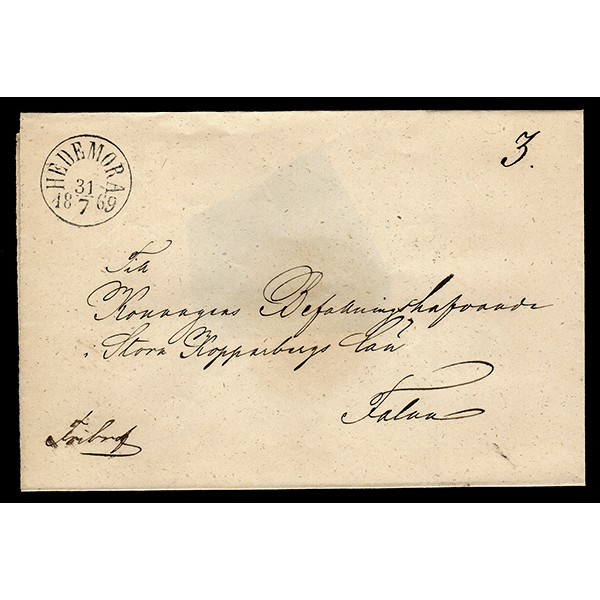 HEDEMORA
31
18 7 69
3.
Till
Konungens Befallningshafvande
i Stora Kopparbergs Län
Falun
Fribref